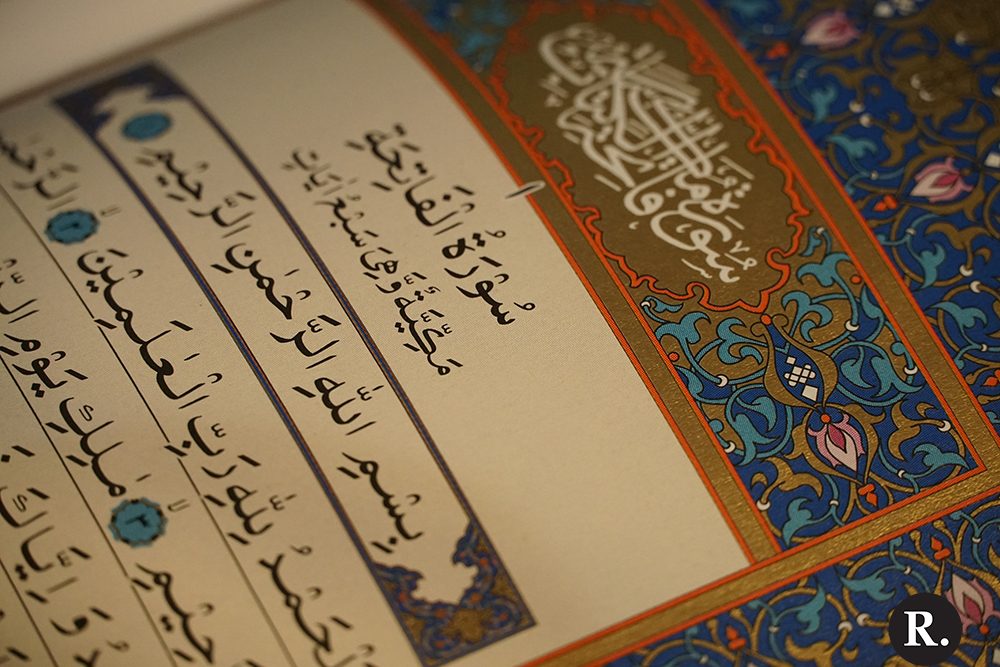 سُوْرَةُ الْفَاتِحَةِ
مَكِّيَّةٌ وَّهِىَ سَبْعُ اٰيَاتٍ
بِسْمِ اللّٰهِ الرَّحْمٰنِ الرَّحِيْمِ
لْحَمْدُ لِلّٰهِ رَبِّ الْعٰلَمِيْنَ ۙ ٢ الرَّحْمٰ
حِيْمِ ۙ ٣ مٰلِكِ يَوْمِ الدِّ
دُ وَ اِيَّاكَ نَ
R.